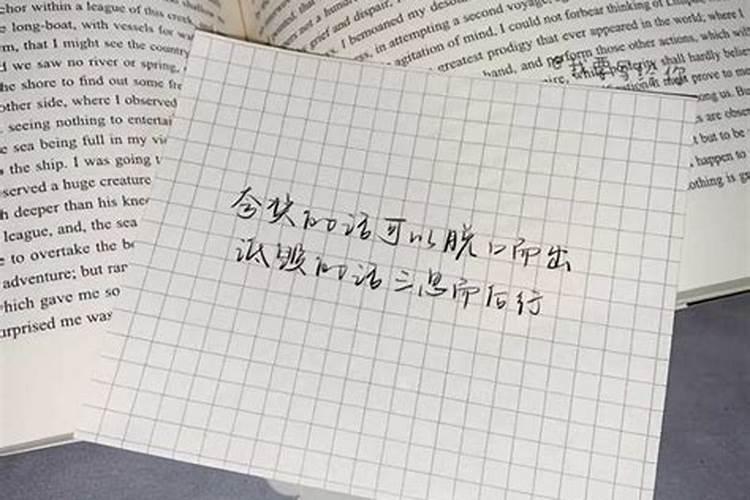 chor within a league of this creek
e long-boat, with vessels for wat
m, that I might see the country
d we saw no river or spring,
the shore to find out some fre
other side, where I observed
seeing nothing to entertai
e sea being full in my vie
the ship. I was going t
served a huge creature
h deeper than his knee
league, and, the sea
e to overtake the be
adventure; but ran
which gave me so
urprised me was
grief and despair,
I bemoaned my deso
in attempting a second voyage,
agitation of mind, I could not forbear thinking of
greatest prodigy that ever appeared in the world; where I
hand, and perform those other actions, which will
shall hardly believe
might prove to me
ong us. But
are observed
t but to be
happen to
othing is
我要写给你
夸奖的话可以脱口而出
诋毁的话三思而后行